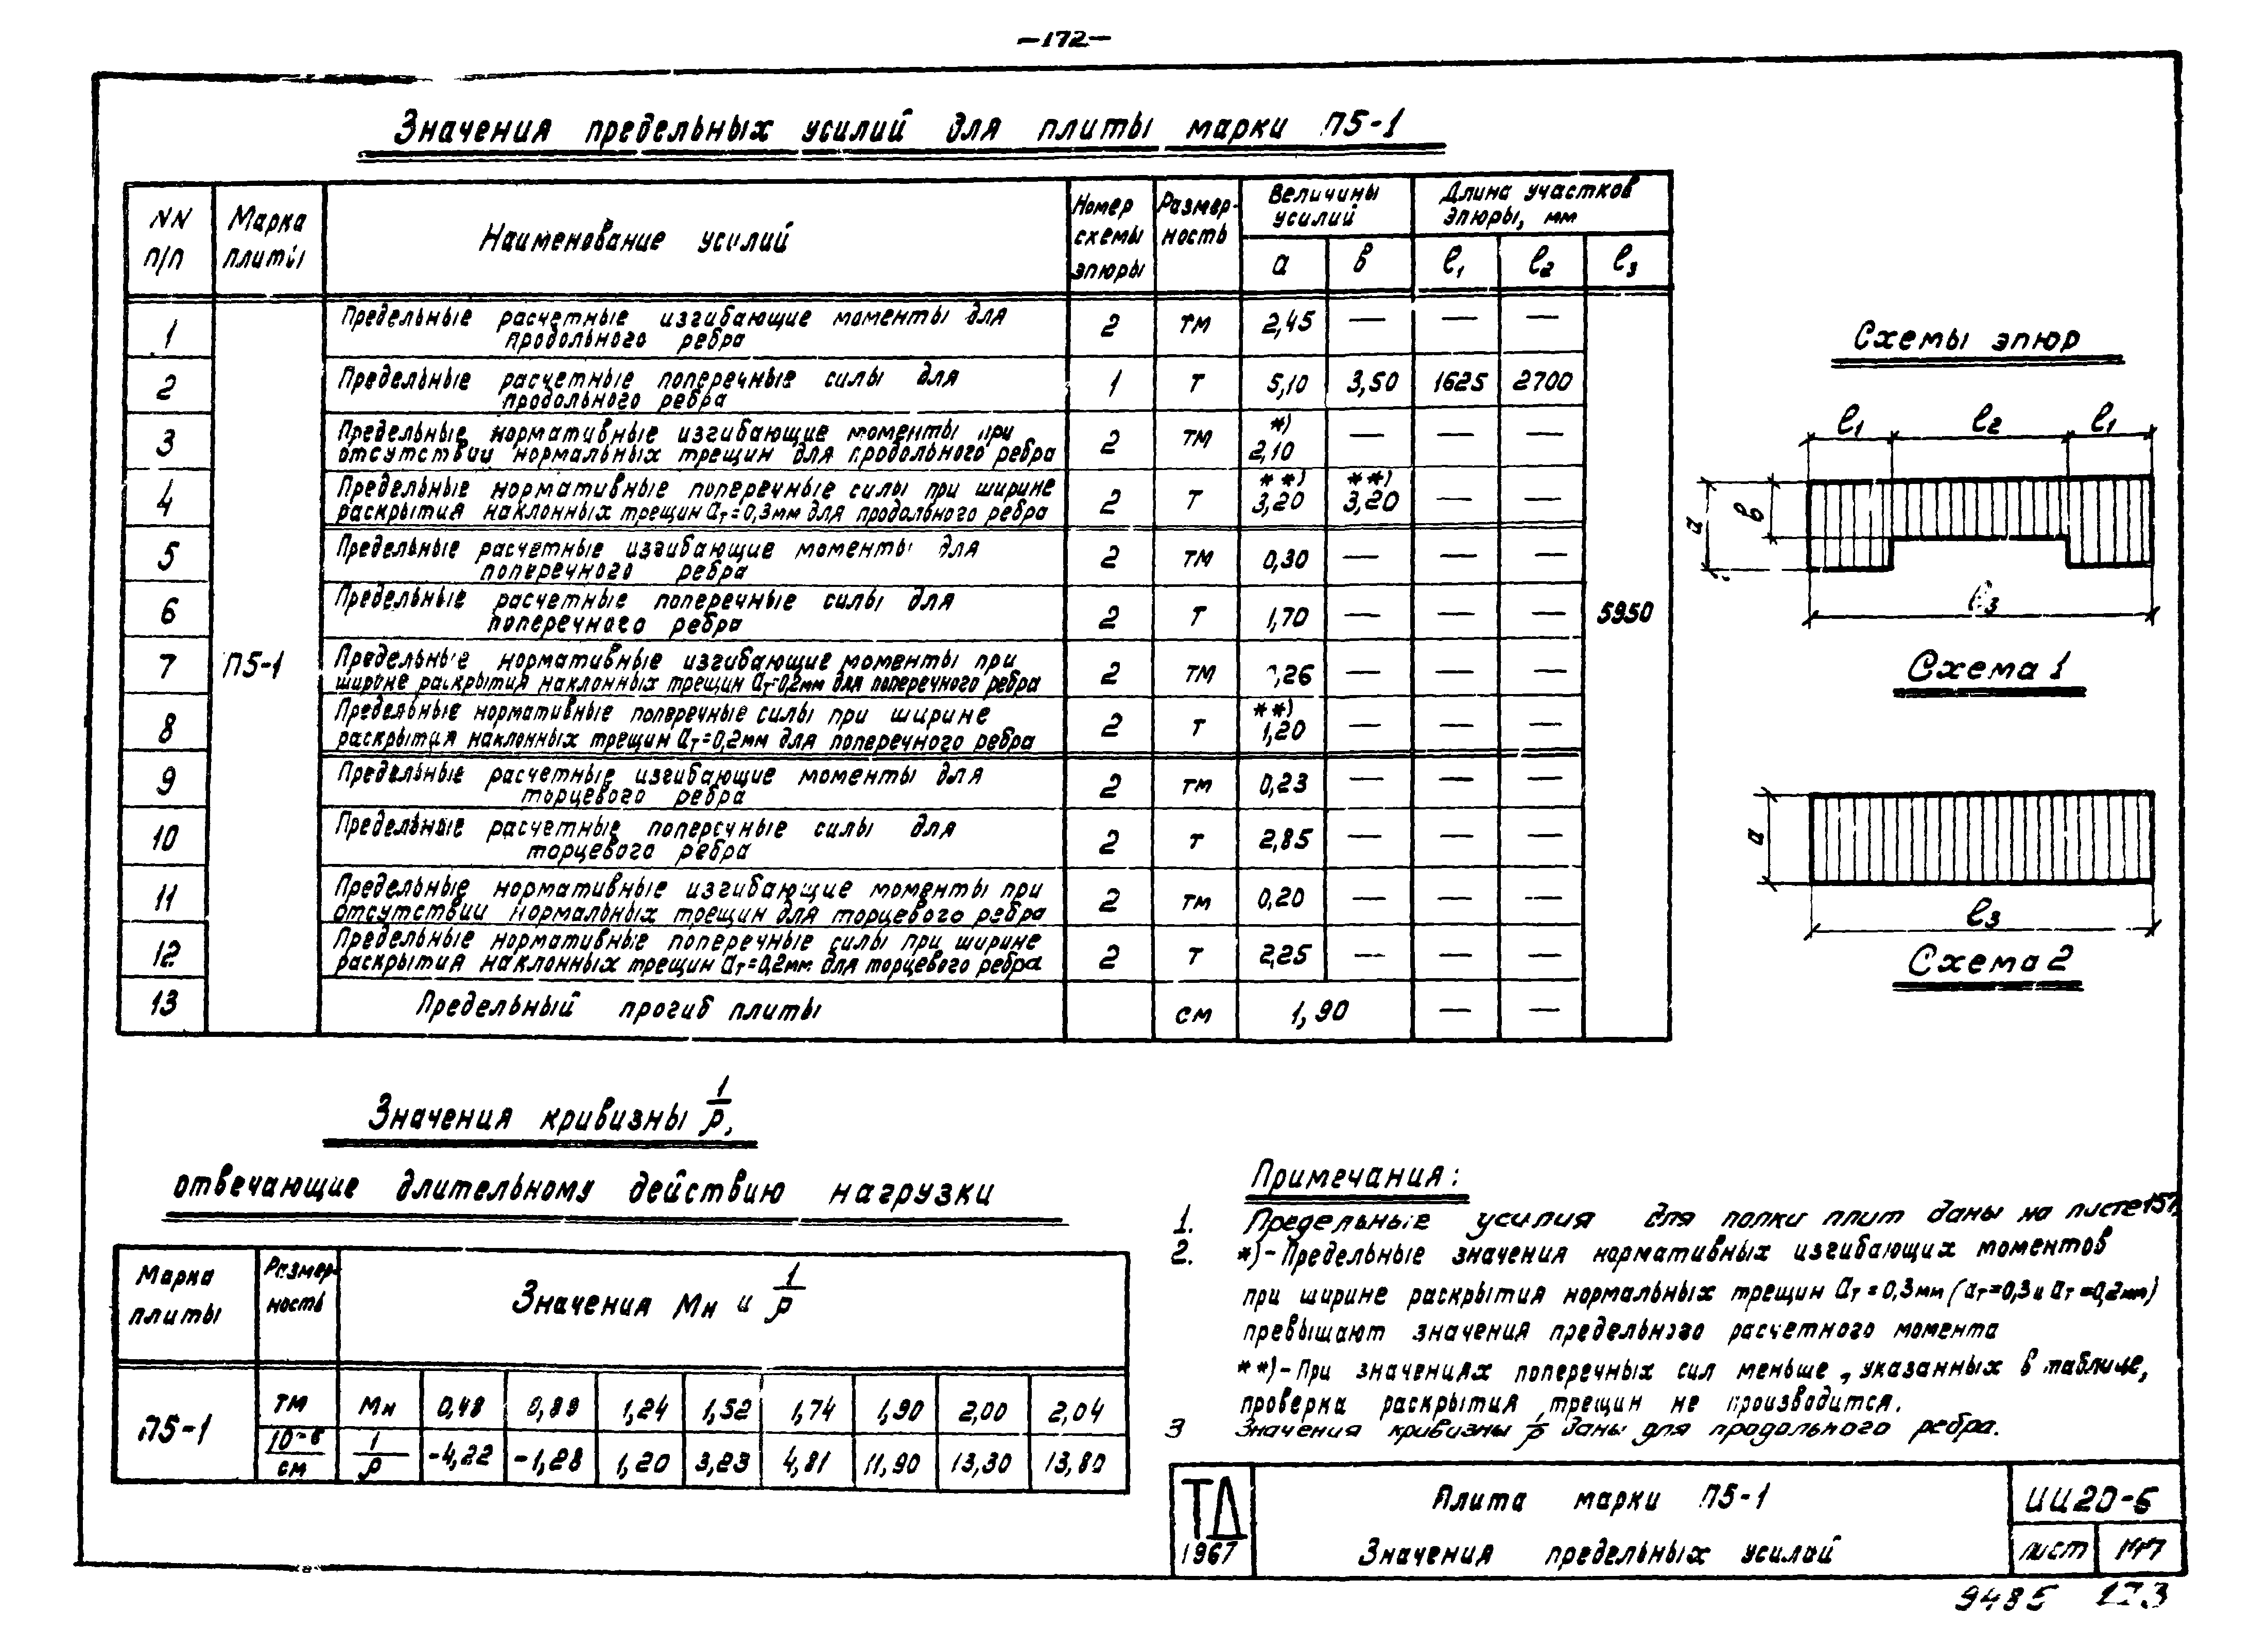 —172—
Значения предельных усилий для плиты марки П5-1
NN п/п | Марка плиты | Наименование усилий | Номер схемы эпюры | Размер-ность | Величины усилий | Длина участков эпюры, мм
а | в | ℓ₁ | ℓ₂ | ℓ₃
1 | Предельные расчетные изгибающие моменты для продольного ребра | 2 | тм | 2,45 | — | — | —
2 | Предельные расчетные поперечные силы для продольного ребра | 1 | т | 5,10 | 3,50 | 1625 | 2700
3 | Предельные нормативные изгибающие моменты при отсутствии нормальных трещин для продольного ребра | 2 | тм | *) 2,10 | — | — | —
4 | Предельные нормативные поперечные силы при ширине раскрытия наклонных трещин aт=0,3мм для продольного ребра | 2 | т | **) 3,20 | **) 3,20 | — | —
5 | Предельные расчетные изгибающие моменты для поперечного ребра | 2 | тм | 0,30 | — | — | —
6 | Предельные расчетные поперечные силы для поперечного ребра | 2 | т | 1,70 | — | — | — | 5950
7 | П5-1 | Предельные нормативные изгибающие моменты при ширине раскрытия наклонных трещин aт=0,2мм для поперечного ребра | 2 | тм | ,26 | — | — | —
8 | Предельные нормативные поперечные силы при ширине раскрытия наклонных трещин aт=0,2мм для поперечного ребра | 2 | т | **) 1,20 | — | — | —
9 | Предельные расчетные изгибающие моменты для торцевого ребра | 2 | тм | 0,23 | — | — | —
10 | Предельные расчетные поперечные силы для торцевого ребра | 2 | т | 2,85 | — | — | —
11 | Предельные нормативные изгибающие моменты при отсутствии нормальных трещин для торцевого ребра | 2 | тм | 0,20 | — | — | —
12 | Предельные нормативные поперечные силы при ширине раскрытия наклонных трещин aт=0,2мм для торцевого ребра | 2 | т | 2,25 | — | — | —
13 | Предельный прогиб плиты | см | 1,90 | — | —
Схемы эпюр
ℓ₁ ℓ₂ ℓ₁
а в
ℓ₃
Схема 1
а
ℓ₃
Схема 2
Значения кривизны 1/ρ,
отвечающие длительному действию нагрузки
Марка плиты | Размер-ность | Значения Мн и 1/ρ
П5-1 | тм | Мн | 0,48 | 0,89 | 1,24 | 1,52 | 1,74 | 1,90 | 2,00 | 2,04
см | 1/ρ | -4,22 | -1,28 | 1,20 | 3,23 | 4,81 | 11,90 | 13,30 | 13,80
Примечания:
1. Предельные усилия для полки плит даны на листе 157.
2. *)- Предельные значения нормативных изгибающих моментов
при ширине раскрытия нормальных трещин aт = 0,3мм (aт=0,3 и aт=0,2мм)
превышают значения предельного расчетного момента
**)- При значениях поперечных сил меньше, указанных в таблице,
проверка раскрытия трещин не производится.
3 Значения кривизны 1/ρ даны для продольного ребра.
ТД
1967
Плита марки П5-1
Значения предельных усилий
ИИ20-5
лист
9485 173